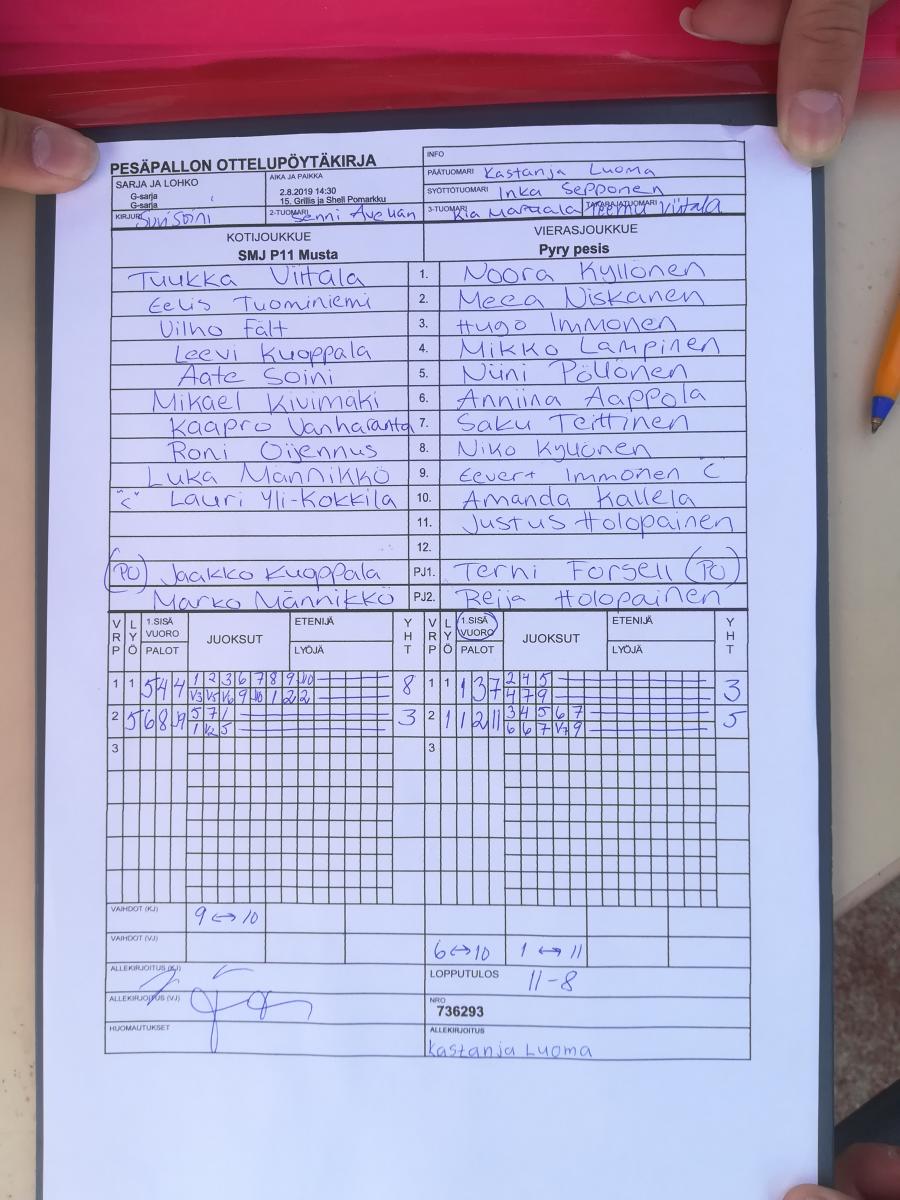 PESÄPALLON OTTELUPÖYTÄKIRJA
INFO
SARJA JA LOHKO
G-sarja
G-sarja
AIKA JA PAIKKA
2.8.2019 14:30
15. Grillis ja Shell Pomarkku
PÄÄTUOMARI Kastanja Luoma
SYÖTTÖTUOMARI Inka Sepponen
KIRJURI Suvi Soini
2-TUOMARI Senni
3-TUOMARI Kia
TAKARAJATUOMARI Teemu Viitala
KOTIJOUKKUE
SMJ P11 Musta
VIERASJOUKKUE
Pyry pesis
Tuukka Viitala 1. Noora Kyllönen
Eelis Tuominiemi 2. Meea Niskanen
Vilho Fält 3. Hugo Immonen
Leevi Kuoppala 4. Mikko Lampinen
Aate Soini 5. Niini Pöllönen
Mikael Kivimäki 6. Anniina Aappola
Kaapro Vanharanta 7. Saku Teittinen
Roni Oijennus 8. Niko Kyllönen
Luka Männikkö 9. Eevert Immonen C
"C" Lauri Yli-Kokkila 10. Amanda Kallela
11. Justus Holopainen
12.
(PU) Jaakko Kuoppala PJ1. Terhi Forsell (PU)
Marko Männikkö PJ2. Reija Holopainen
VRP LYÖ 1.SISÄ VUORO PALOT JUOKSUT ETENIJÄ LYÖJÄ YHT VRP LYÖ 1.SISÄ VUORO PALOT JUOKSUT ETENIJÄ LYÖJÄ YHT
1 1 5 4 4 1 2 3 6 7 8 9 10 8 1 1 1 3 7 2 4 5 3
V3 V5 V6 9 10 1 2 2 4 7 9
2 5 6 8 9 5 7 1 3 2 1 1 2 11 3 4 5 6 7 5
1 V2 5 6 6 7 V7 9
3 3
VAIHDOT (KJ) 9 ↔ 10
VAIHDOT (VJ) 6 ↔ 10 1 ↔ 11
ALLEKIRJOITUS (KJ)
LOPPUTULOS 11-8
ALLEKIRJOITUS (VJ)
NRO
736293
HUOMAUTUKSET
ALLEKIRJOITUS
Kastanja Luoma